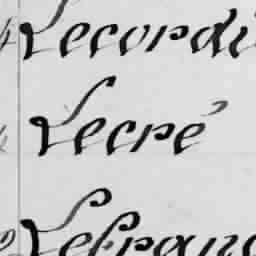 Lecordi
Lecré
Lefranc